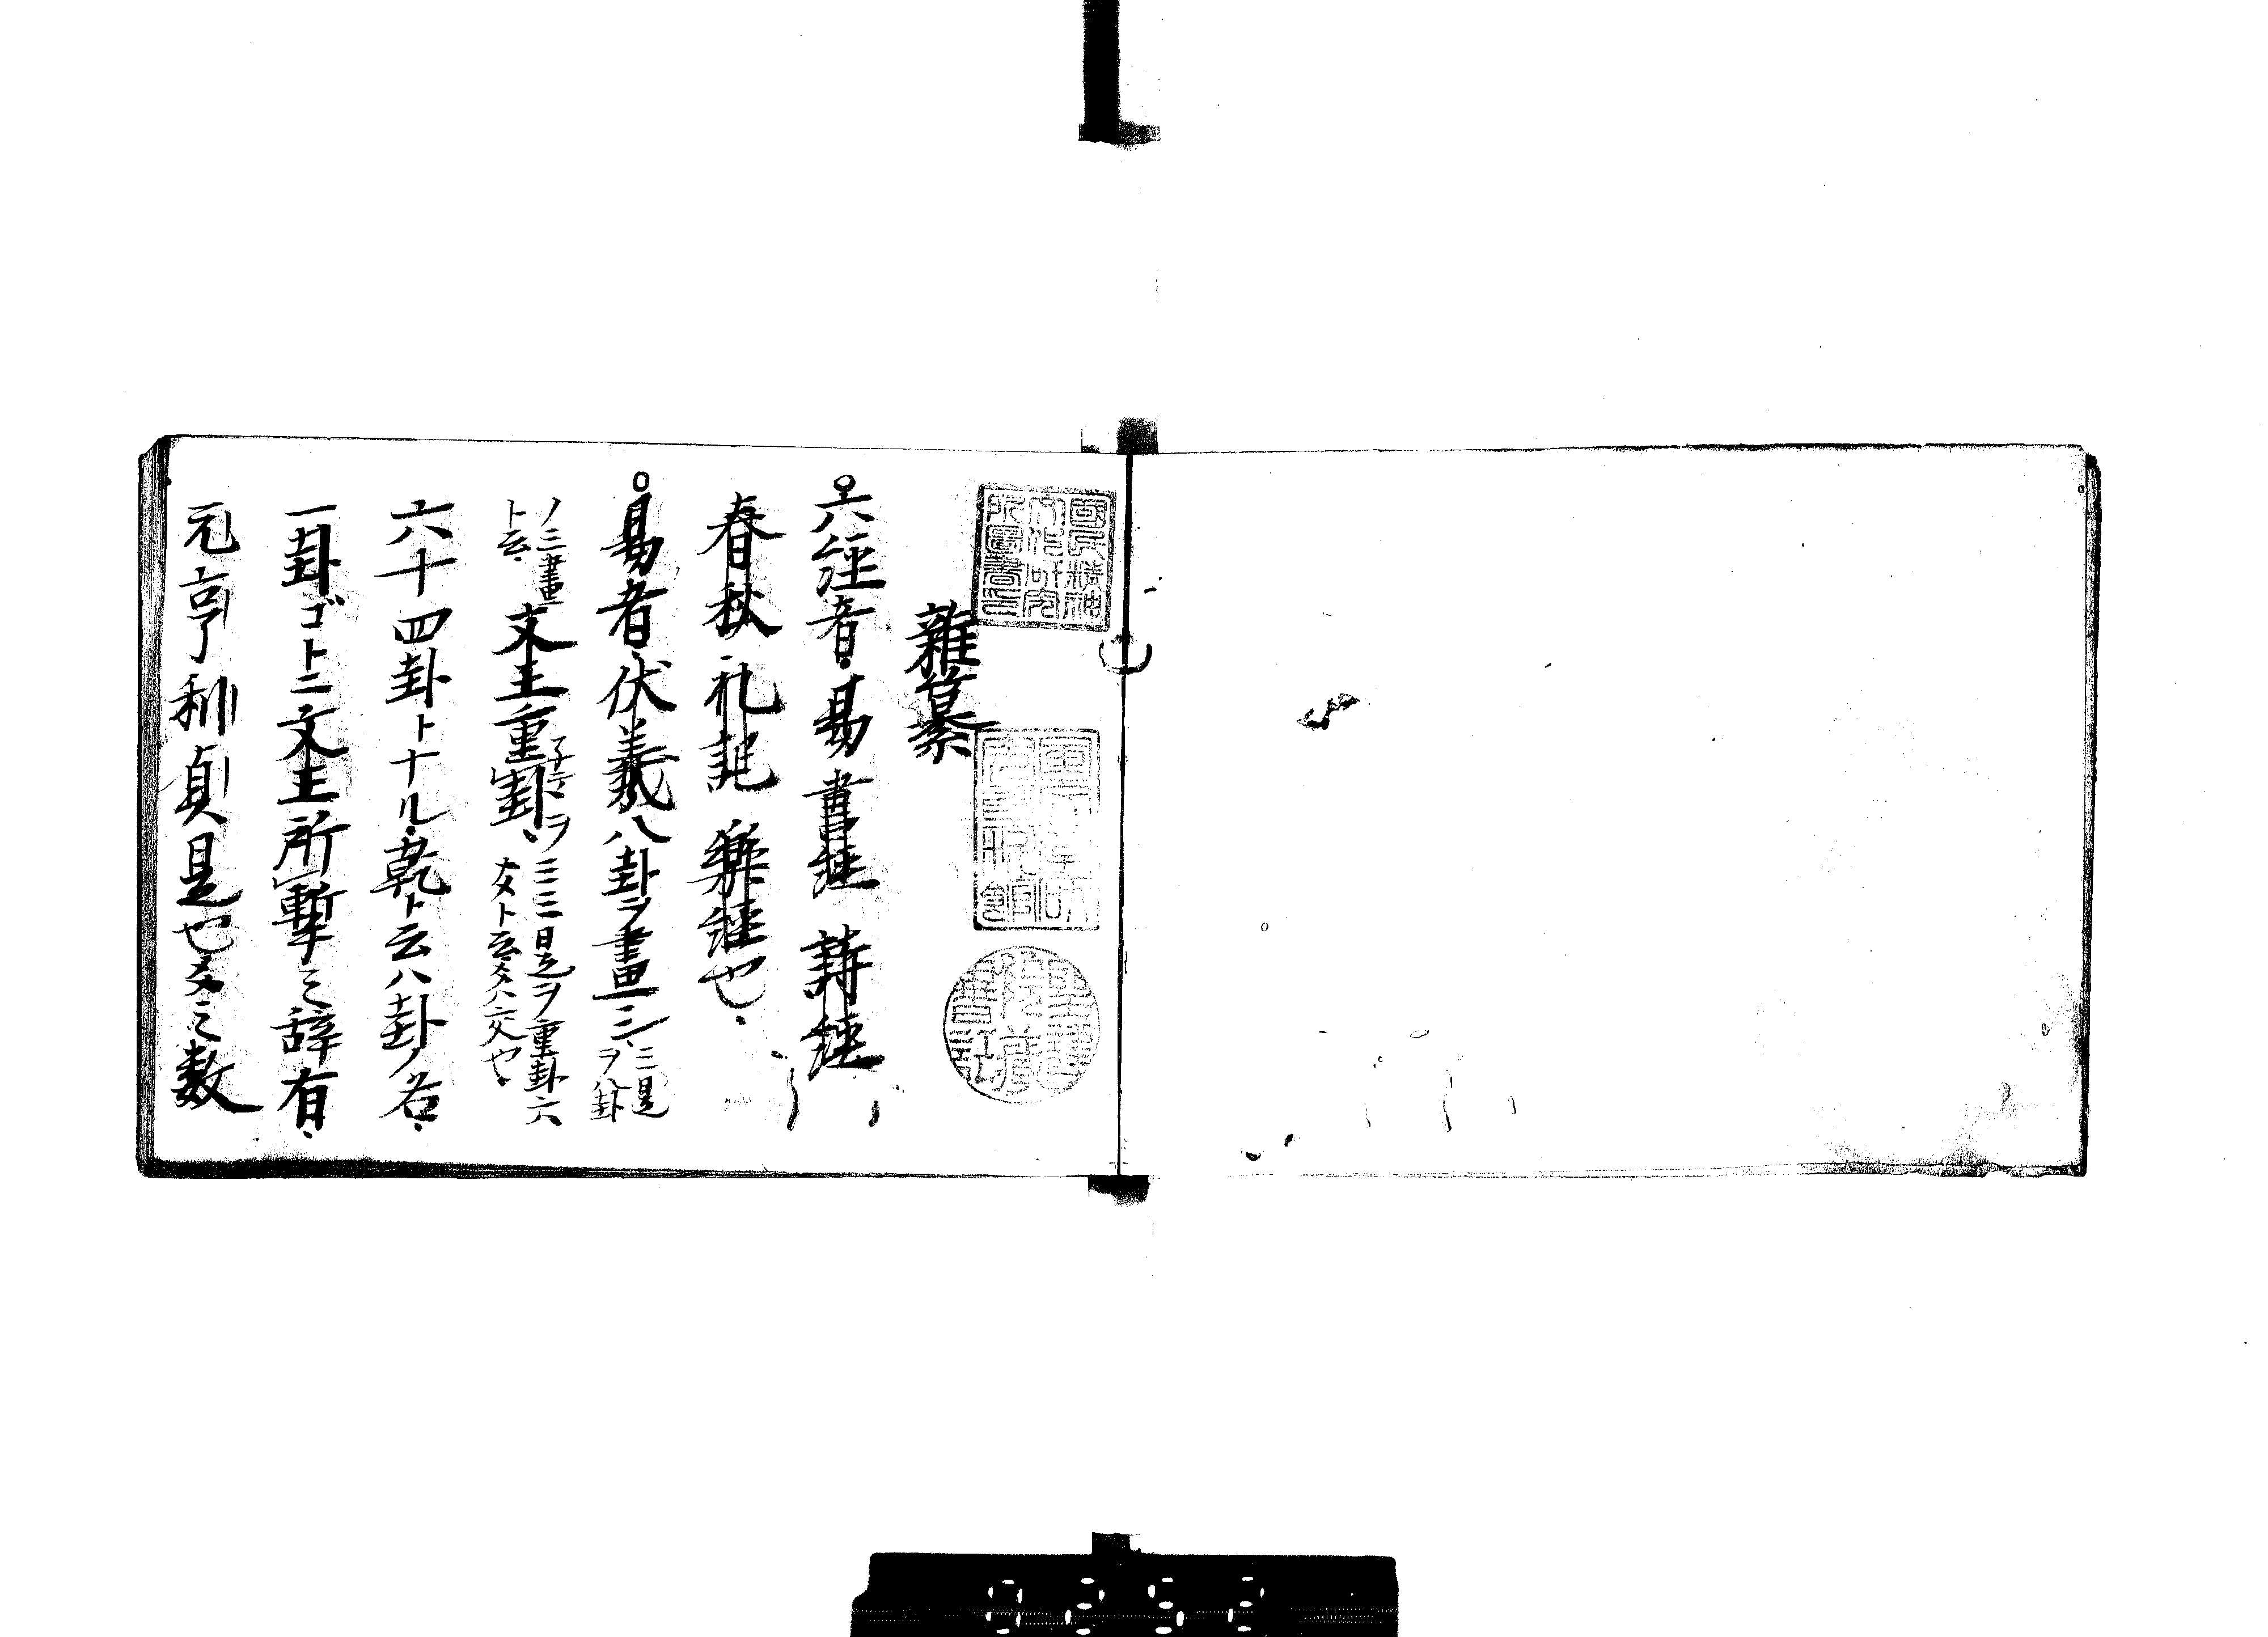 雜纂
○六経音易書経詩経
春秋礼記樂経也
○易者伏羲八卦ヲ畫シ三是ヲ八卦
ノ三畫ト云文王重卦ヲ三三是ヲ重卦六
爻ト云爻ハ交也
六十四卦トナル乾ト云ハ卦ノ名
一卦ゴトニ文王所繫之辞有
元亨利貞是也爻之数
國民精神文化研究所圖書印